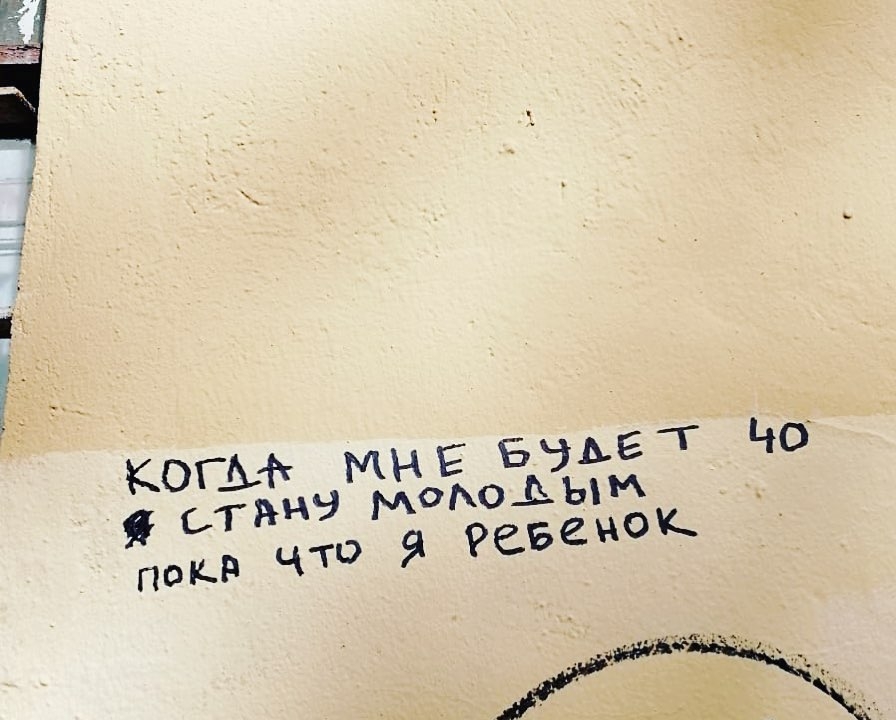 КОГДА МНЕ БУДЕТ 40
Я СТАНУ МОЛОДЫМ
ПОКА ЧТО Я РЕБЕНОК